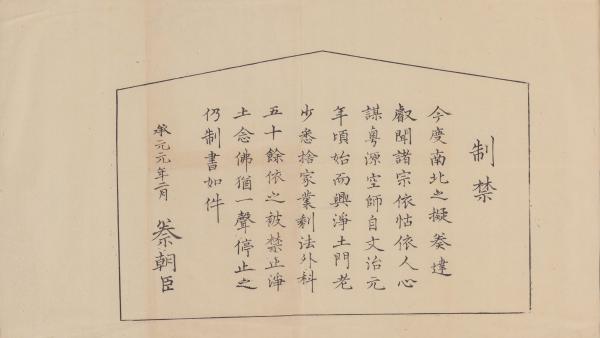 制禁
今度南北之擬奏達
叡聞諸宗依怙依人心
謀粤源空師自文治元
年頃始而興淨土門老
少悉捨家業剰法外科
五十餘依之被禁止淨
土念佛猶一聲停止之
仍制書如件
承元元年二月
祭朝臣